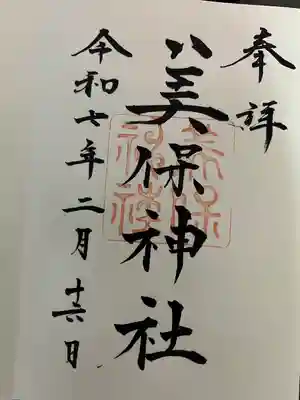 奉拝
美保神社
美保
神社
令和七年二月十六日